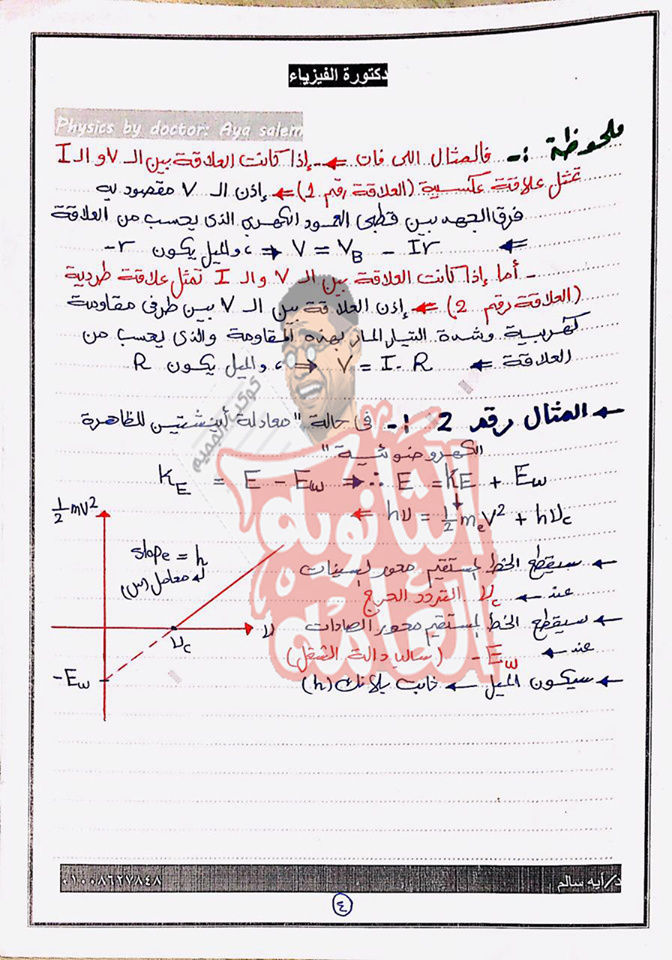 دكتورة الفيزياء
Physics by doctor: Aya salem
ملحوظة :- فالمثال اللى فات ← - إذا كانت العلاقة بين الـ V و الـ I
تمثل علاقة عكسية (العلاقة رقم 1) ← إذن الـ V مقصود به
فرق الجهد بين قطبى العمود الكهربي الذى يحسب من العلاقة
← V = VB - Ir ⇒ ، والميل يكون r-
- أما إذا كانت العلاقة بين الـ V والـ I تمثل علاقة طردية
(العلاقة رقم 2) ← إذن العلاقة بين الـ V بين طرفى مقاومة
كهربية وشدة التيار المار بهذه المقاومة والذى يحسب من
العلاقة ← V = I . R ⇒ ، والميل يكون R
← المثال رقم 2 :- فى حالة "معادلة أينشتين للظاهرة
الكهروضوئية"
KE = E - Ew ⇒ ∴ E = KE + Ew
← hν = ½ meV² + hνc
½ mV²
slope = h
معامل (س)
ν
νc
-Ew
← سيقطع الخط المستقيم محور السينات
عند ← νc التردد الحرج
← سيقطع الخط المستقيم محور الصادات
عند ← -Ew (سالب دالة الشغل)
← سيكون الميل ← ثابت بلانك (h)
الثانوية العامة
كوكب المميم
د/آيه سالم
٠١٠٠٨٦٢٧٨٤٨
٤